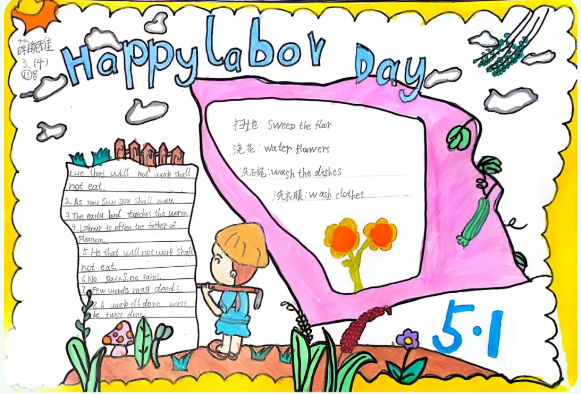 Happy labor Day
3.(4)
扫地 Sweep the floor
浇花: water flowers
洗碗: wash the dishes
洗衣服: wash clothes
1. He that will not work shall
not eat.
2. As you sow you shall mow.
3. The early bird catches the worm.
is often the father of
pleasure.
5. He that will not work shall
not eat.
6. No pains, no gains.
7. Few words many deeds.
8. A work ill done must
be twice done.
5.1